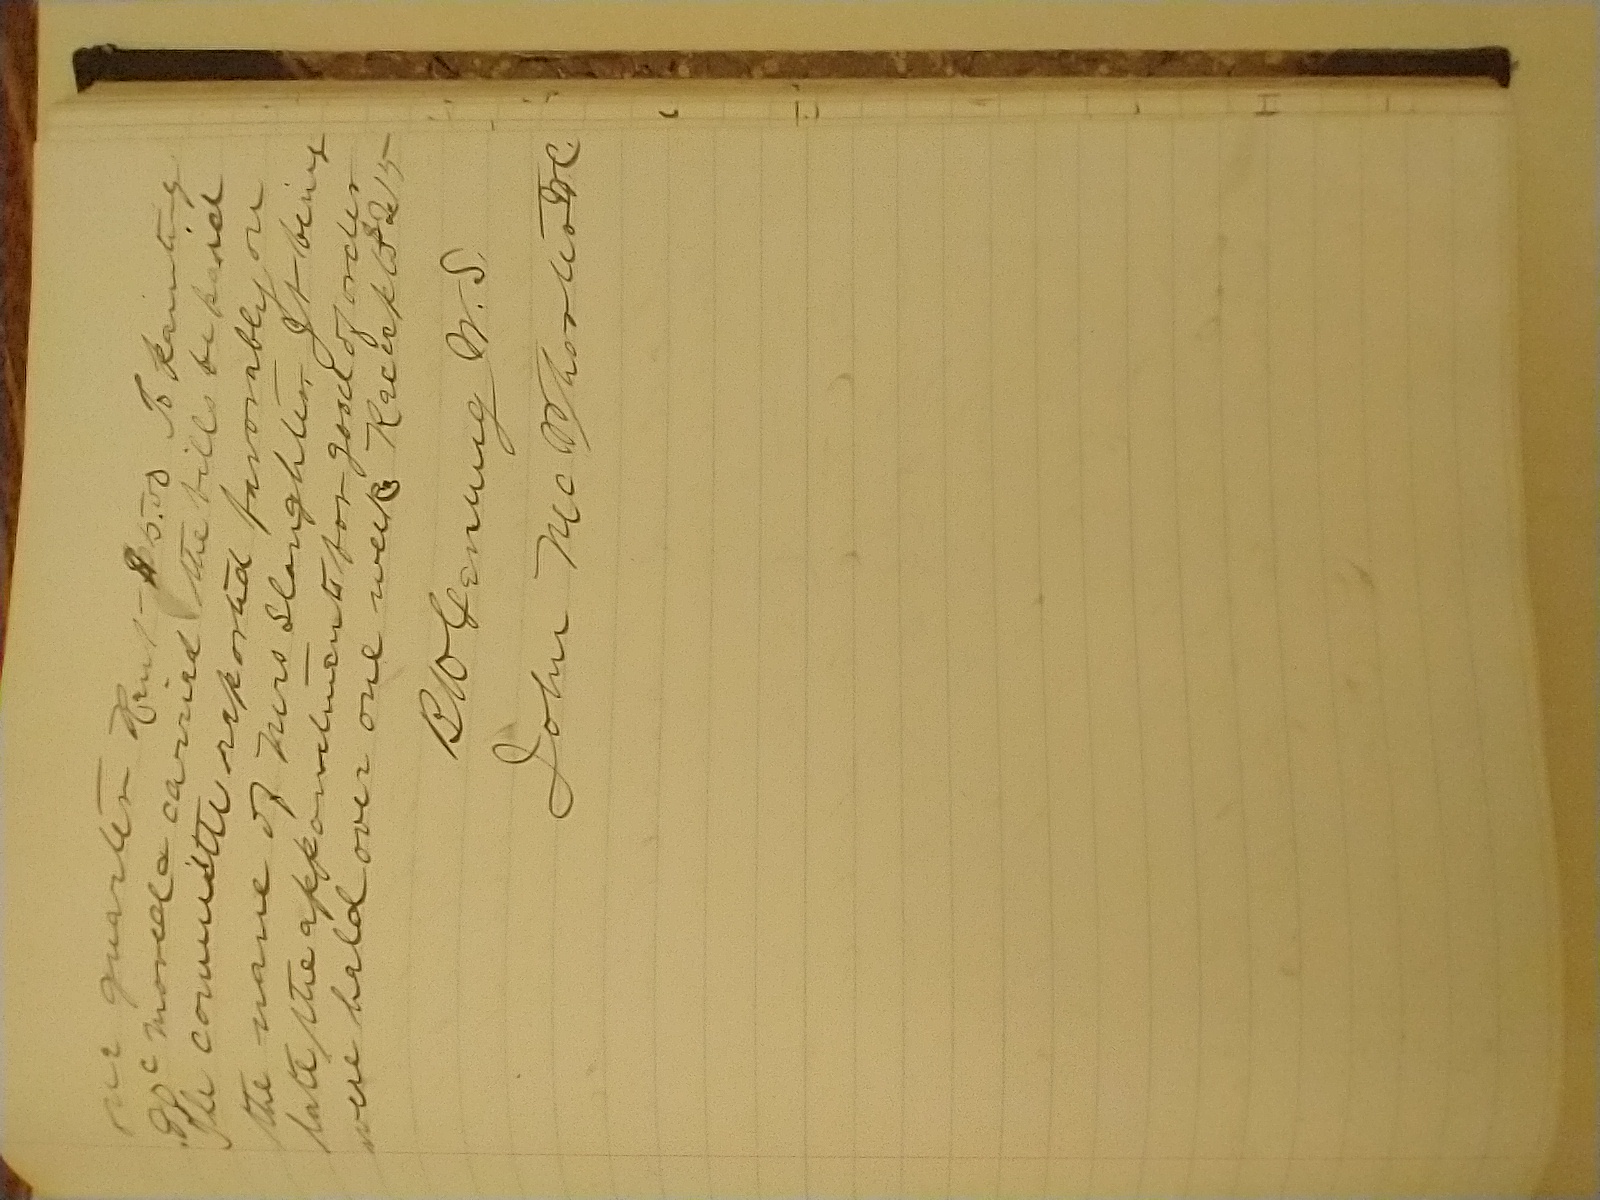 one quarter Rent $5.00 To painting
90c moved & carried the bills be paid
The committe reported favorably on
the name of Mrs Slaughter. It being
late the appointments for good of order
were held over one week Receipts $2 15
B W Genung W. S.
John McWhorter W C.